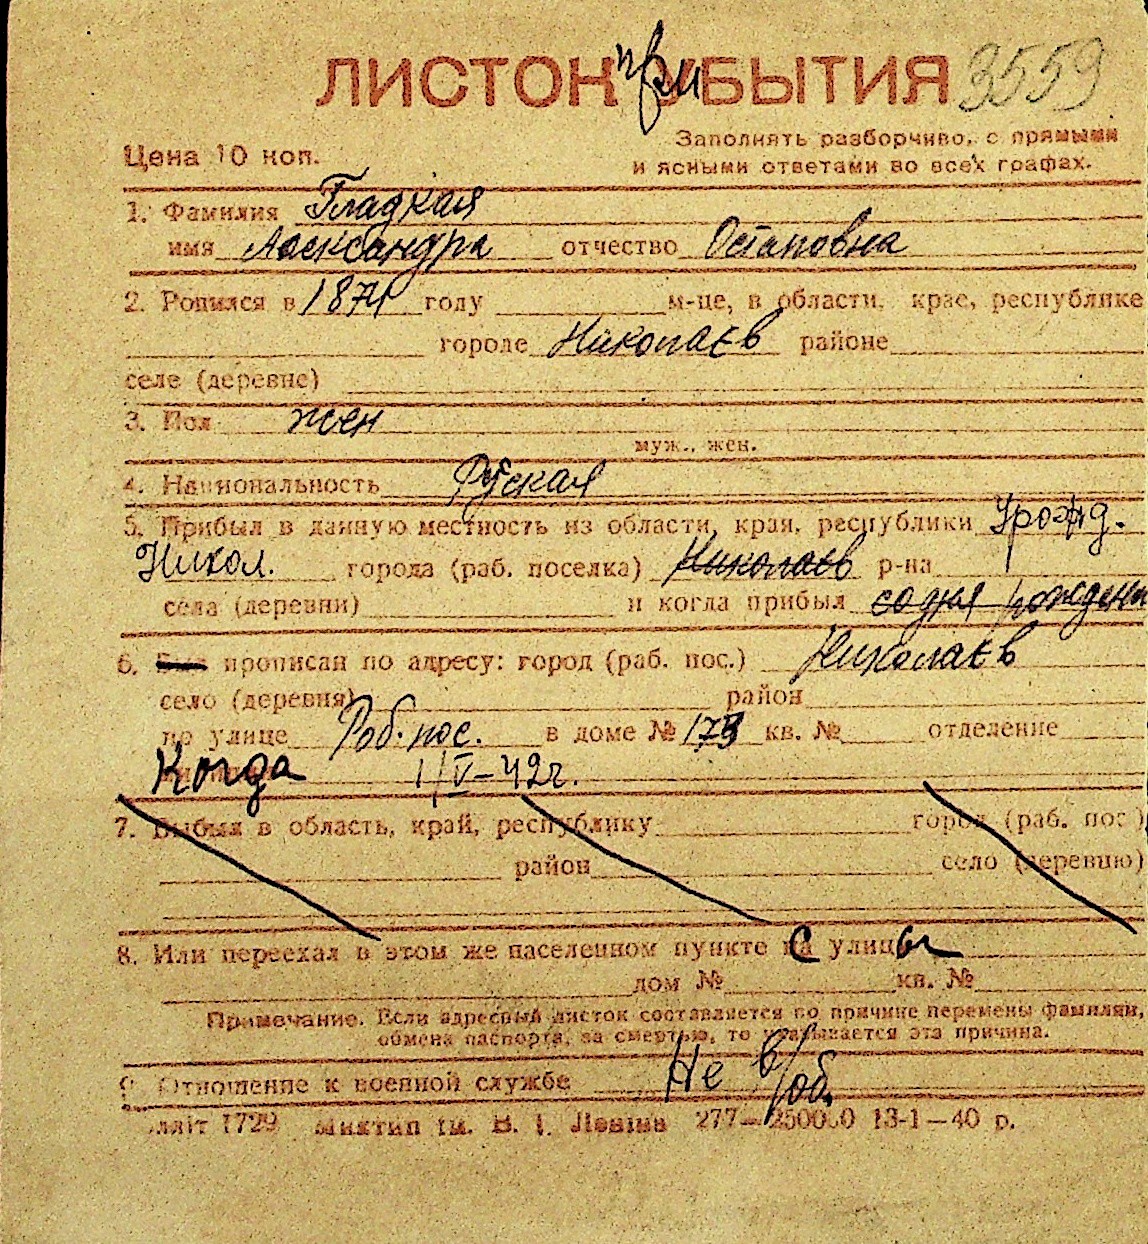 ЛИСТОК прбЫТИЯ 3559
Цена 10 коп.
Заполнять разборчиво, с прямыми
и ясными ответами во всех графах.
1. Фамилия Гладкая
имя Александра отчество Остаповна
2. Родился в 1874 году м-це, в области, крае, республике
городе Николаєв районе
селе (деревне)
3. Пол жен
муж., жен.
4. Национальность Руская
5. Прибыл в данную местность из области, края, республики Урожд.
Никол. города (раб. поселка) Николаєв р-на
села (деревни) и когда прибыл со дня рождения
6. Был прописан по адресу: город (раб. пос.) Николаєв
село (деревня) район
по улице Роб. пос. в доме № 173 кв. № отделение
Когда 1/V-42г.
7. Выбыл в область, край, республику город (раб. пос.)
район село (деревню)
8. Или переехал в этом же населенном пункте с улицы
дом № кв. №
Примечание. Если адресный листок составляется по причине перемены фамилии,
обмена паспорта, за смертью, то указывается эта причина.
9. Отношение к военной службе Не в/об.
1729 В. І. Леніна 277—250000 13-1—40 р.